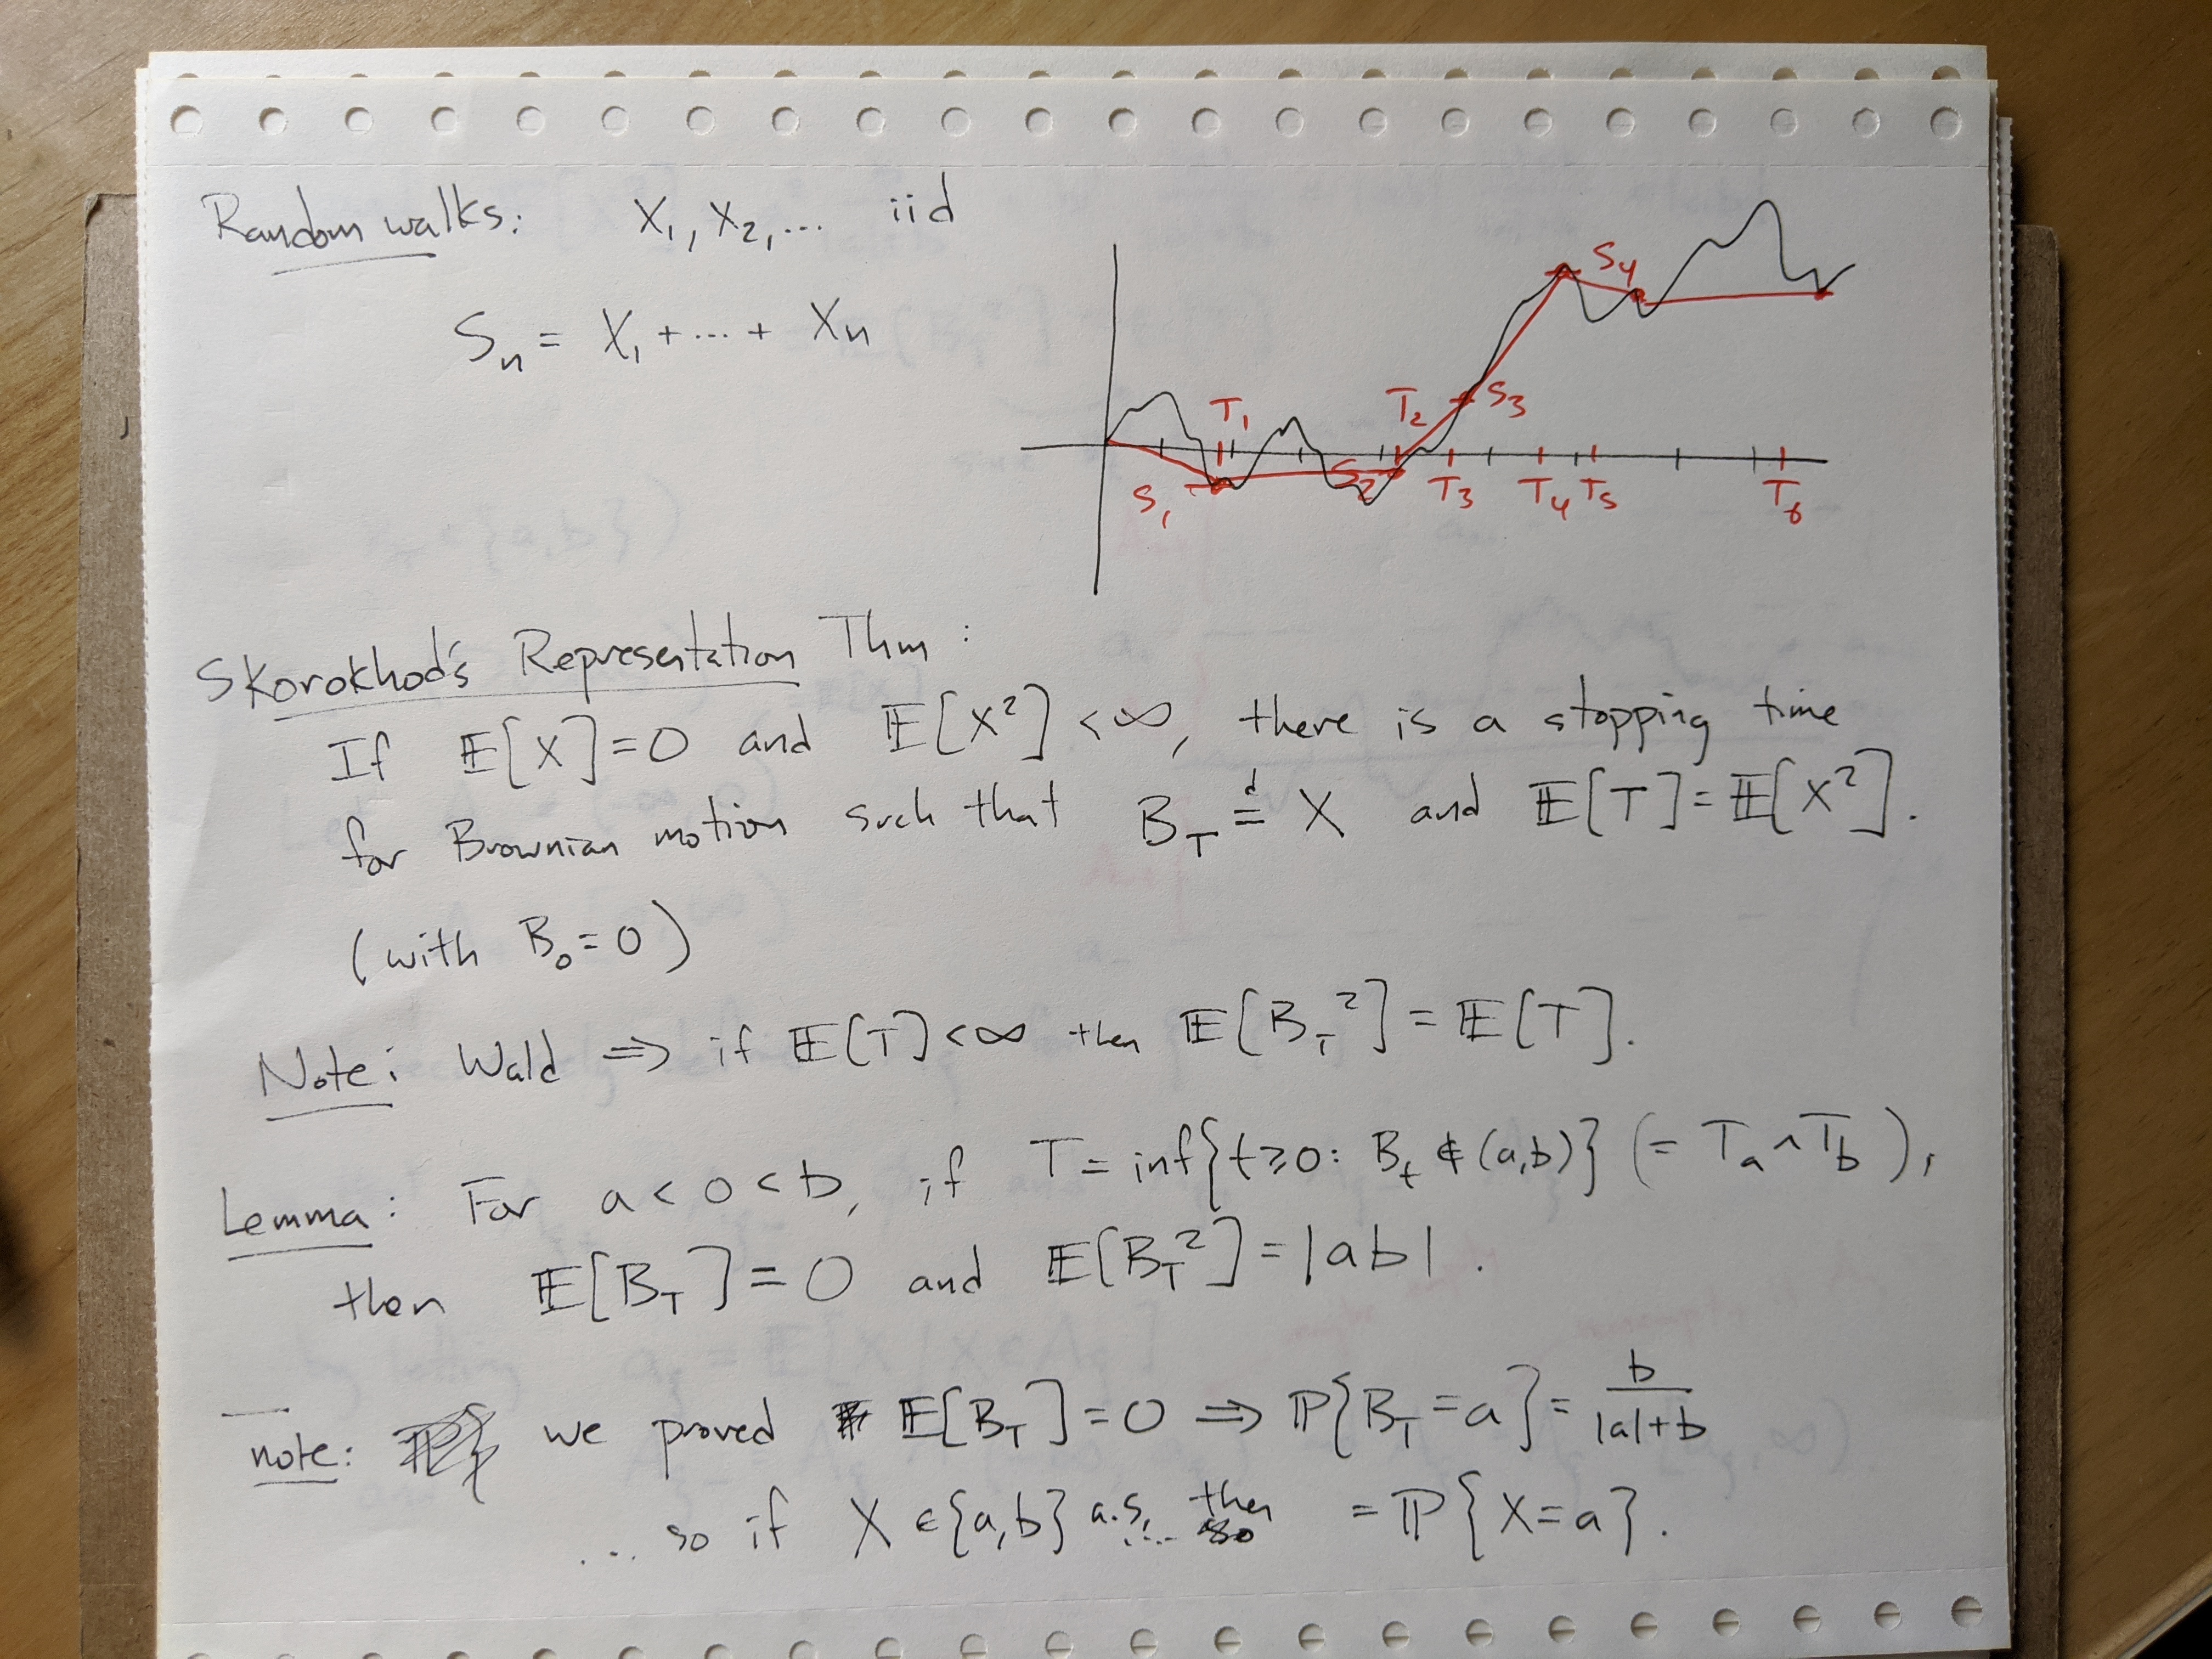 Random walks: X₁, X₂, ... iid
Sₙ = X₁ + ... + Xₙ
S₄
T₁ T₂ S₃
S₁ S₂ T₃ T₄ T₅ T₆
Skorokhod's Representation Thm:
If 𝔼[X]=0 and 𝔼[X²]<∞, there is a stopping time
for Brownian motion such that B_T =ᵈ X and 𝔼[T]=𝔼[X²].
(with B₀=0)
Note: Wald ⇒ if 𝔼[T]<∞ then 𝔼[B_T²]=𝔼[T].
Lemma: For a<0<b, if T=inf{t≥0: B_t ∉ (a,b)} (= T_a ∧ T_b),
then 𝔼[B_T]=0 and 𝔼[B_T²]=|ab|.
note: we proved 𝔼[B_T]=0 ⇒ ℙ{B_T=a}= b/(|a|+b)
... so if X ∈ {a,b} a.s, ... then = ℙ{X=a}.